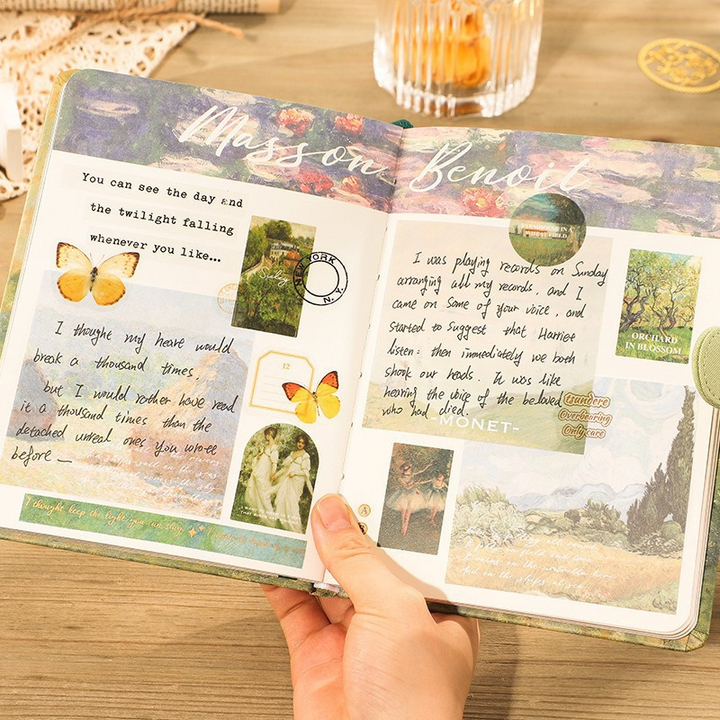 Masson Benoit
You can see the day and
the twilight falling
whenever you like...
NEW YORK
N.Y.
12
I thought my heart would
break a thousand times,
but I would rather have read
it a thousand times than the
detached unreal ones you wrote
before —
I thought keep the light you can stay
I was playing records on Sunday
arranging all my records, and I
came on some of your voice, and
started to suggest that Harriet
listen: then immediately we both
shook our heads. It was like
hearing the voice of the beloved
who had died.
-MONET-
tsundere
Overbearing
Only care
ORCHARD
IN BLOSSOM
A